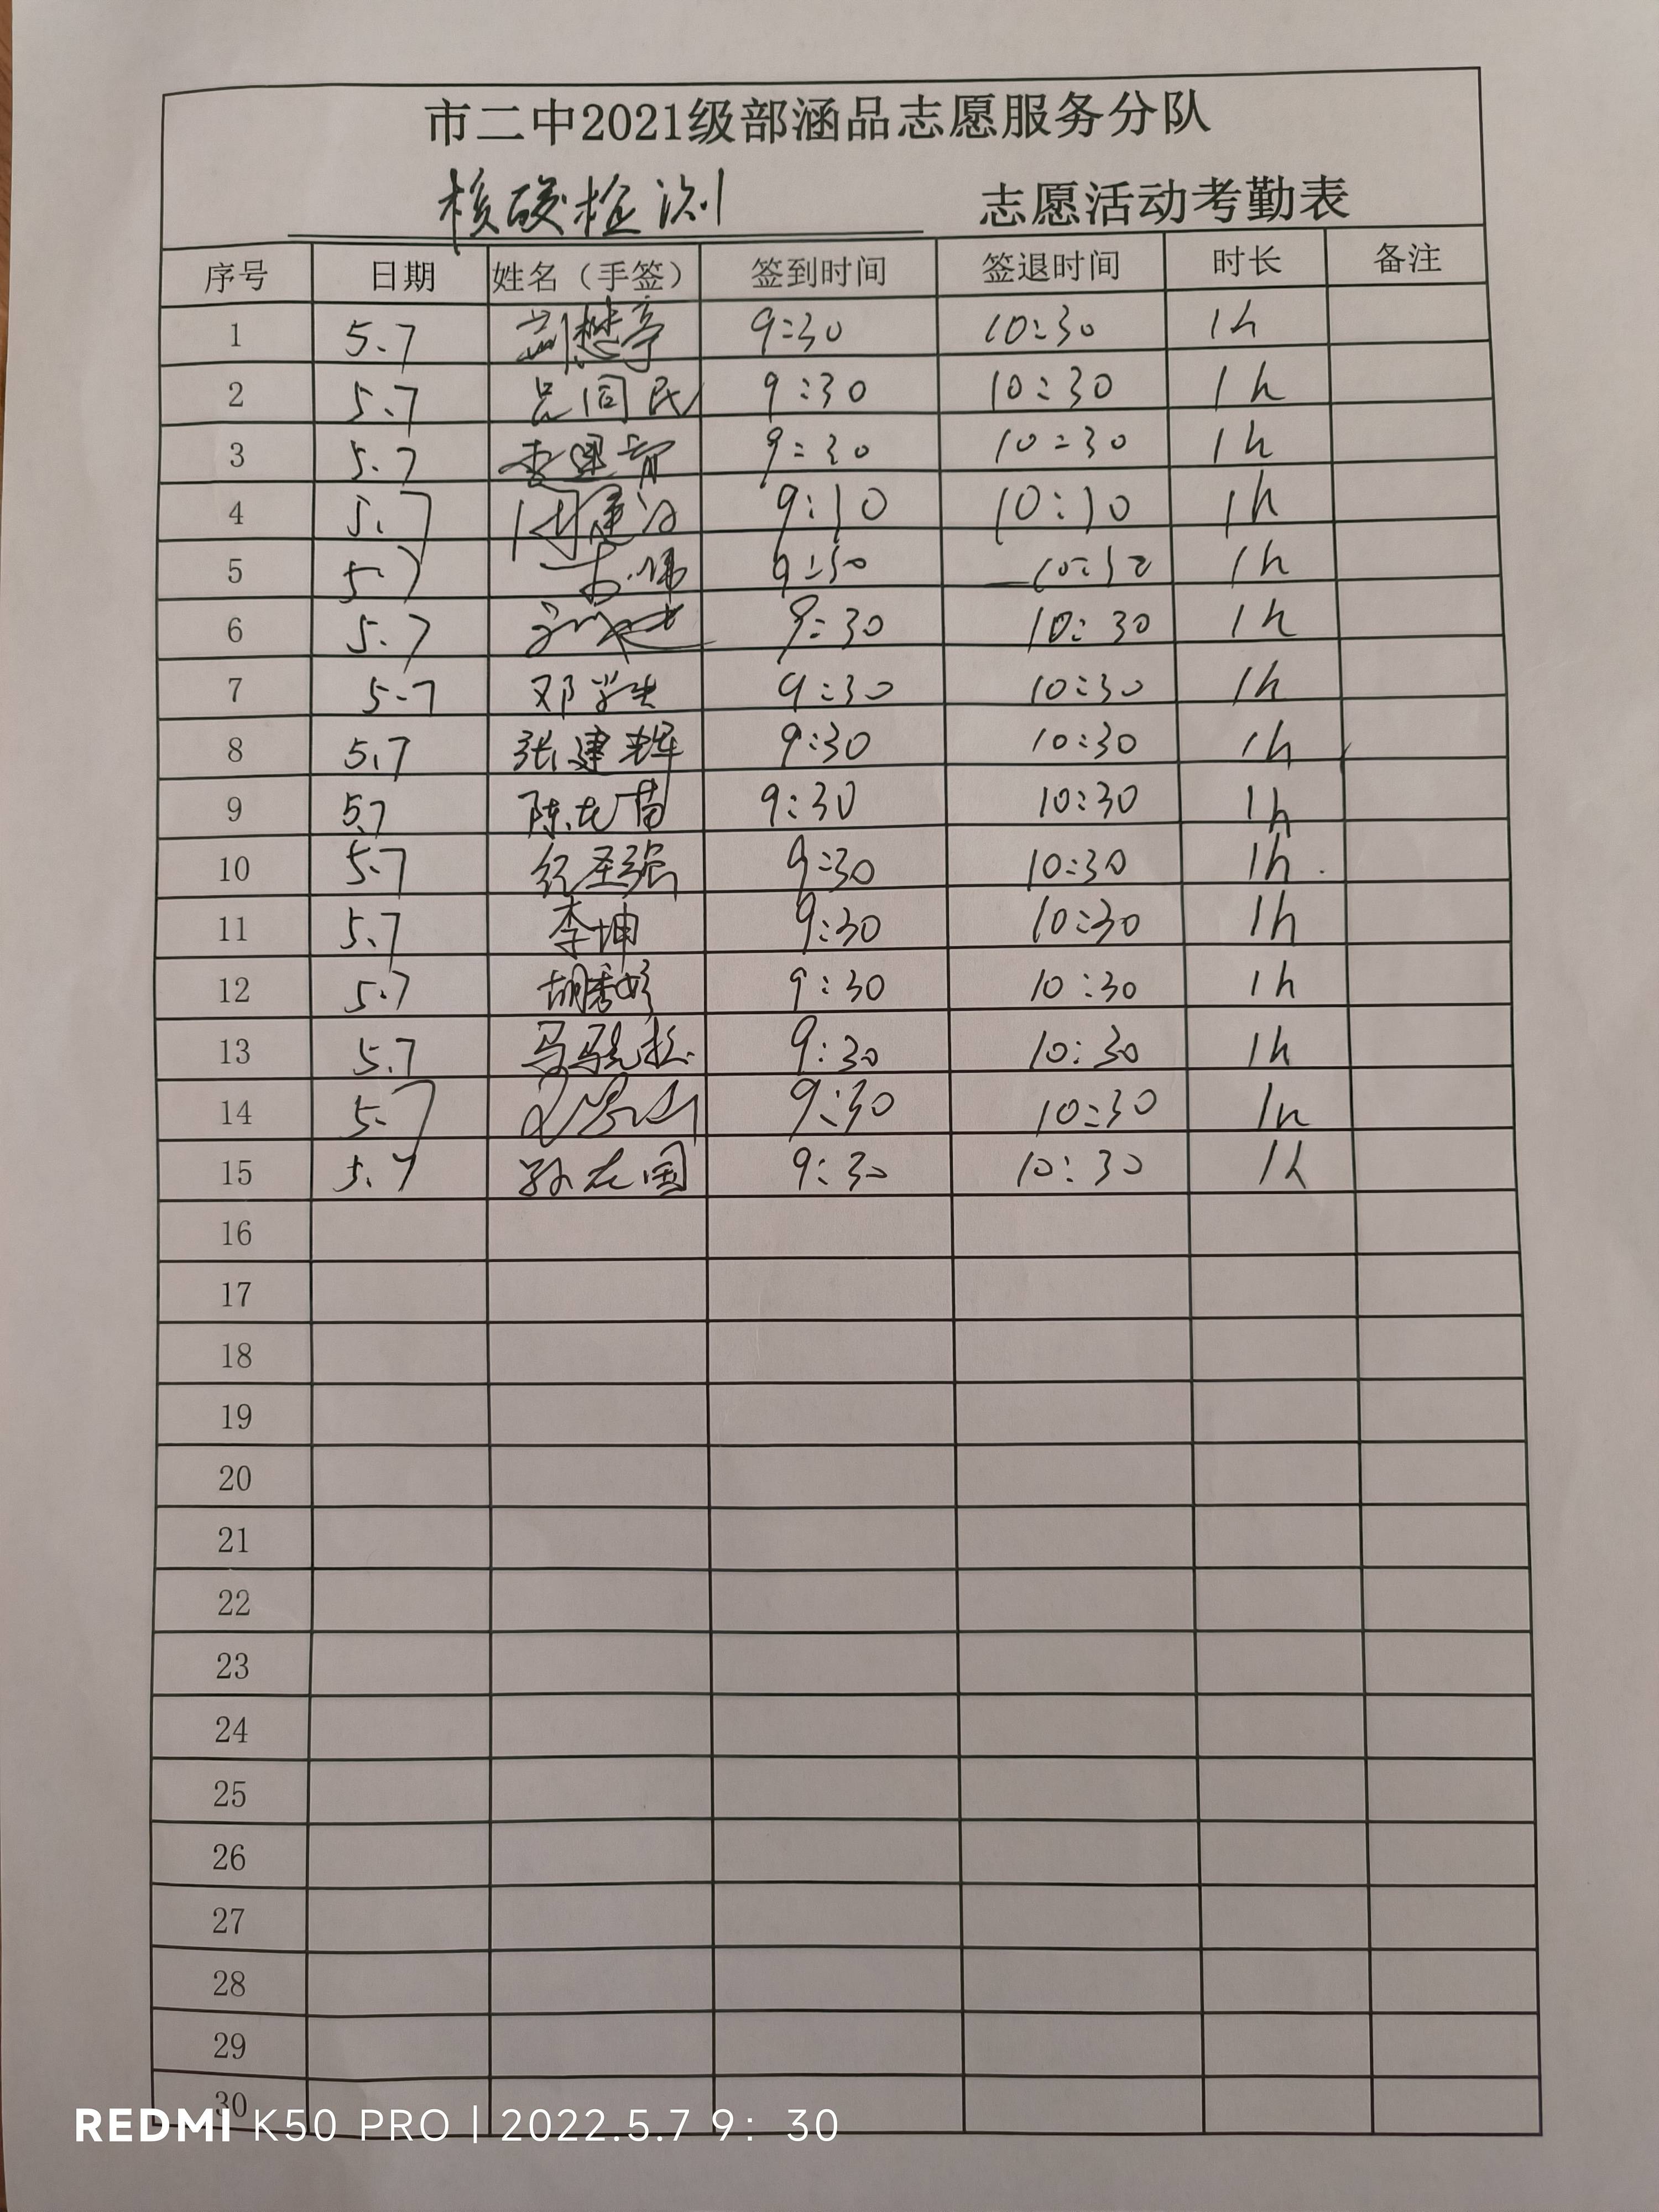 市二中2021级部涵品志愿服务分队
核酸检测 志愿活动考勤表
序号 日期 姓名（手签） 签到时间 签退时间 时长 备注
1 5.7 刘懋亭 9:30 10:30 1h
2 5.7 吕同民 9:30 10:30 1h
3 5.7 9:30 10:30 1h
4 5.7 9:30 10:30 1h
5 5.7 9:30 10:30 1h
6 5.7 9:30 10:30 1h
7 5.7 邓学生 9:30 10:30 1h
8 5.7 张建辉 9:30 10:30 1h
9 5.7 9:30 10:30 1h
10 5.7 纪圣强 9:30 10:30 1h
11 5.7 李坤 9:30 10:30 1h
12 5.7 胡秀婷 9:30 10:30 1h
13 5.7 9:30 10:30 1h
14 5.7 9:30 10:30 1h
15 5.7 9:30 10:30 1h
16
17
18
19
20
21
22
23
24
25
26
27
28
29
30
REDMI K50 PRO | 2022.5.7 9: 30